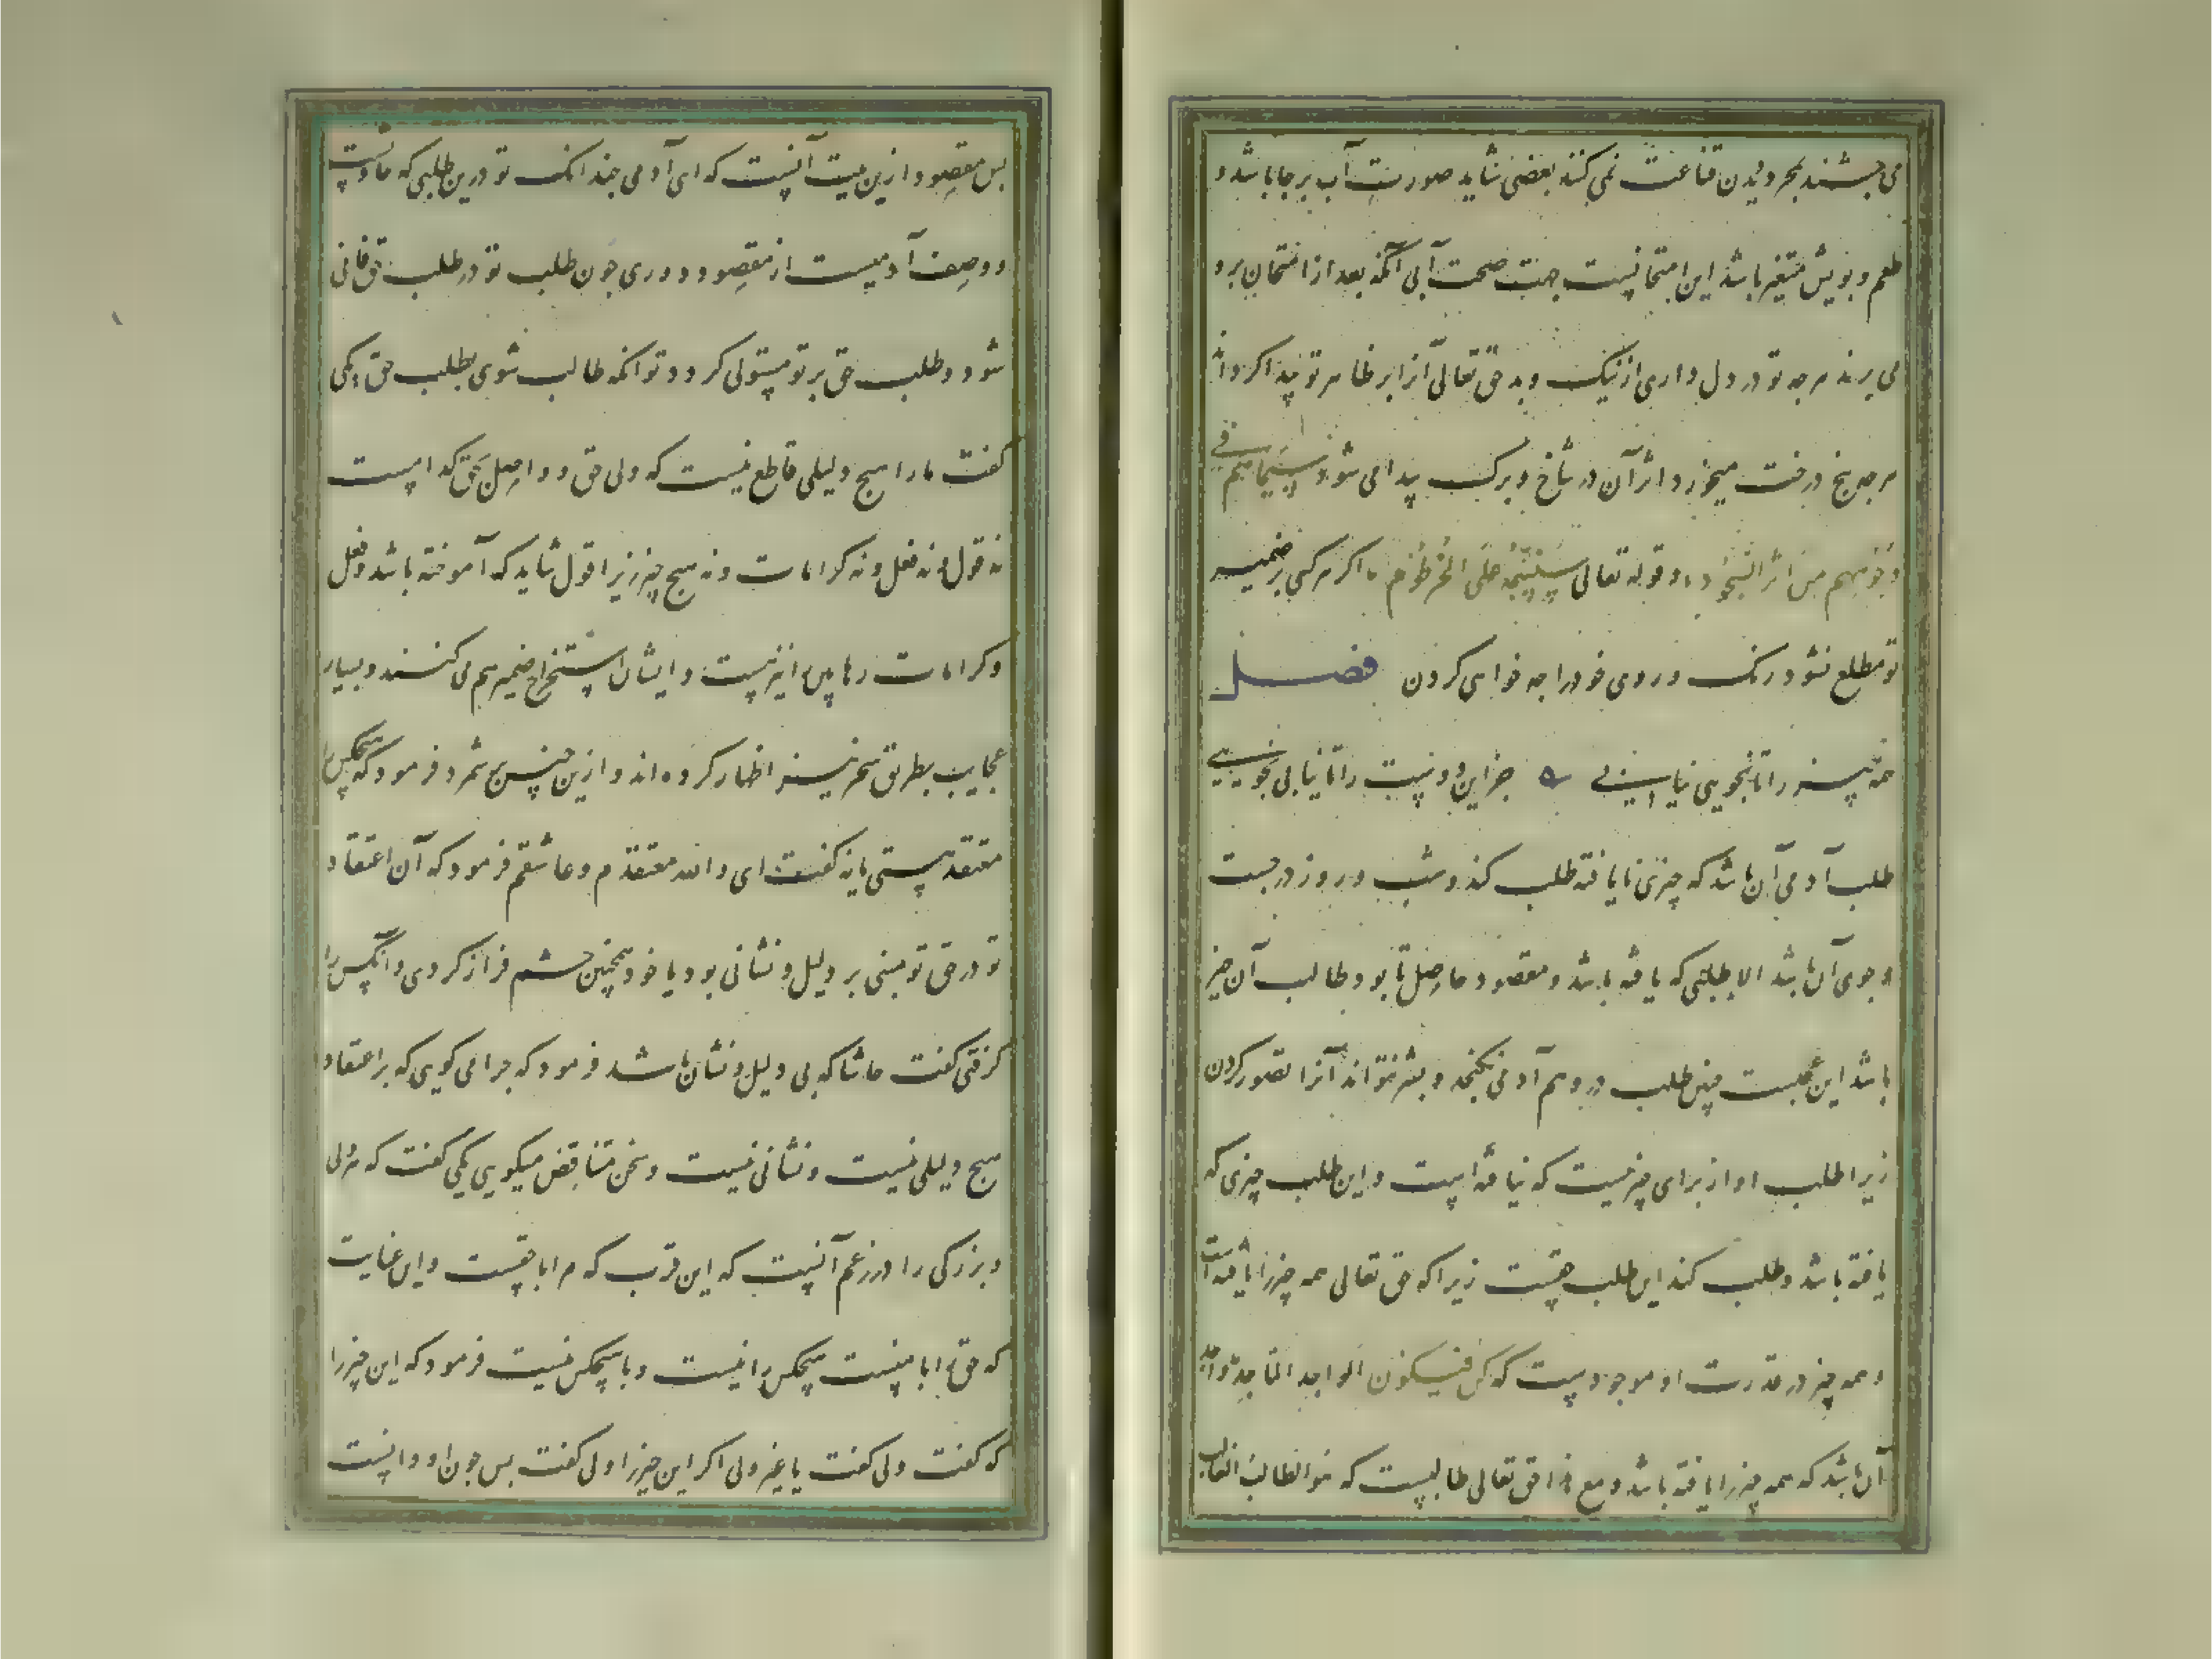 می چشند بمجرد دیدن قناعت نمی کنند بعضی شاید صورت آب برجا باشد و
طعم و بویش متغیر باشد این امتحانیست جهت صحت آبی آنگه بعد از امتحان برو
می برند هرچه تو در دل داری از نیک و بد حق تعالی آنرا بر ظاهر تو پیدا کرداند
هرچه بیخ درخت میخورد اثر آن در شاخ و برک پیدا می شود سِیمَاهُم فی
وُجُوهِهِم مِن اَثَرِ السُّجُود و قوله تعالی سَنَسِمُهُ عَلَی الخُرطُومِ اگر هر کسی بر ضمیر
تو مطلع نشود رنک و روی خود را چه خواهی کردن فصل
همه چیز را تا نجویی نیابی جز این دوست را تا نیابی نجویی
طلب آدمی آن باشد که چیزی نایافته طلب کند و شب و روز در جست
و جوی آن باشد الا طلبی که یافته باشد و مقصود حاصل بود و طالب آن چیز
باشد این عجبست چنین طلب در وهم آدمی نکنجد و بشر نتواند آنرا تصور کردن
زیرا طلب او از برای چیزیست که نیافته است و این طلب چیزی که
یافته باشد و طلب کند این طلب حقست زیرا که حق تعالی همه چیز را یافته است
و همه چیز در قدرت او موجودست که کن فیکون الواجد الماجد و واجد
آن باشد که همه چیز را یافته باشد و مع هذا حق تعالی طالبست که هو الطالب الغالب
بس مقصود ازین میت آنست که ای آدمی چندانک تو درین طلبی که حادثست
و وصف آدمیست از مقصود دوری چون طلب تو در طلب حق فانی
شود و طلب حق بر تو مستولی کردد تو آنکه طالب شوی بطلب حق یکی
کفت ما را هیچ دلیلی قاطع نیست که ولی حق و واصل حق کدامست
نه قول و نه فعل و نه کرامات و نه هیچ چیز زیرا قول شاید که آموخته باشد و فعل
و کرامات رهابین را نیز هست و ایشان استخراج ضمیر هم می کنند و بسیار
عجایب بطریق سحر نیز اظهار کرده اند و ازین جنس بر شمرد فرمود که هیچکس را
معتقد هستی یا نه کفت ای والله معتقدم و عاشقم فرمود که آن اعتقاد
تو در حق تو مبنی بر دلیل و نشانی بود یا خود همچنین چشم فراز کردی و آنکس را
کرفتی کفت حاشا که بی دلیل و نشان باشد فرمود که چرا می کویی که بر اعتقاد
هیچ دلیلی نیست و نشانی نیست و سخن متناقض میکویی یکی کفت که هر ولی
و بزرگی را در زعم آنست که این قرب که مرا با حقست و این عنایت
که حق را با منست هیچکس را نیست و با هیچکس نیست فرمود که این چیز را
که کفت ولی کفت یا غیر ولی اکر این چیز را ولی کفت بس چون او دانست